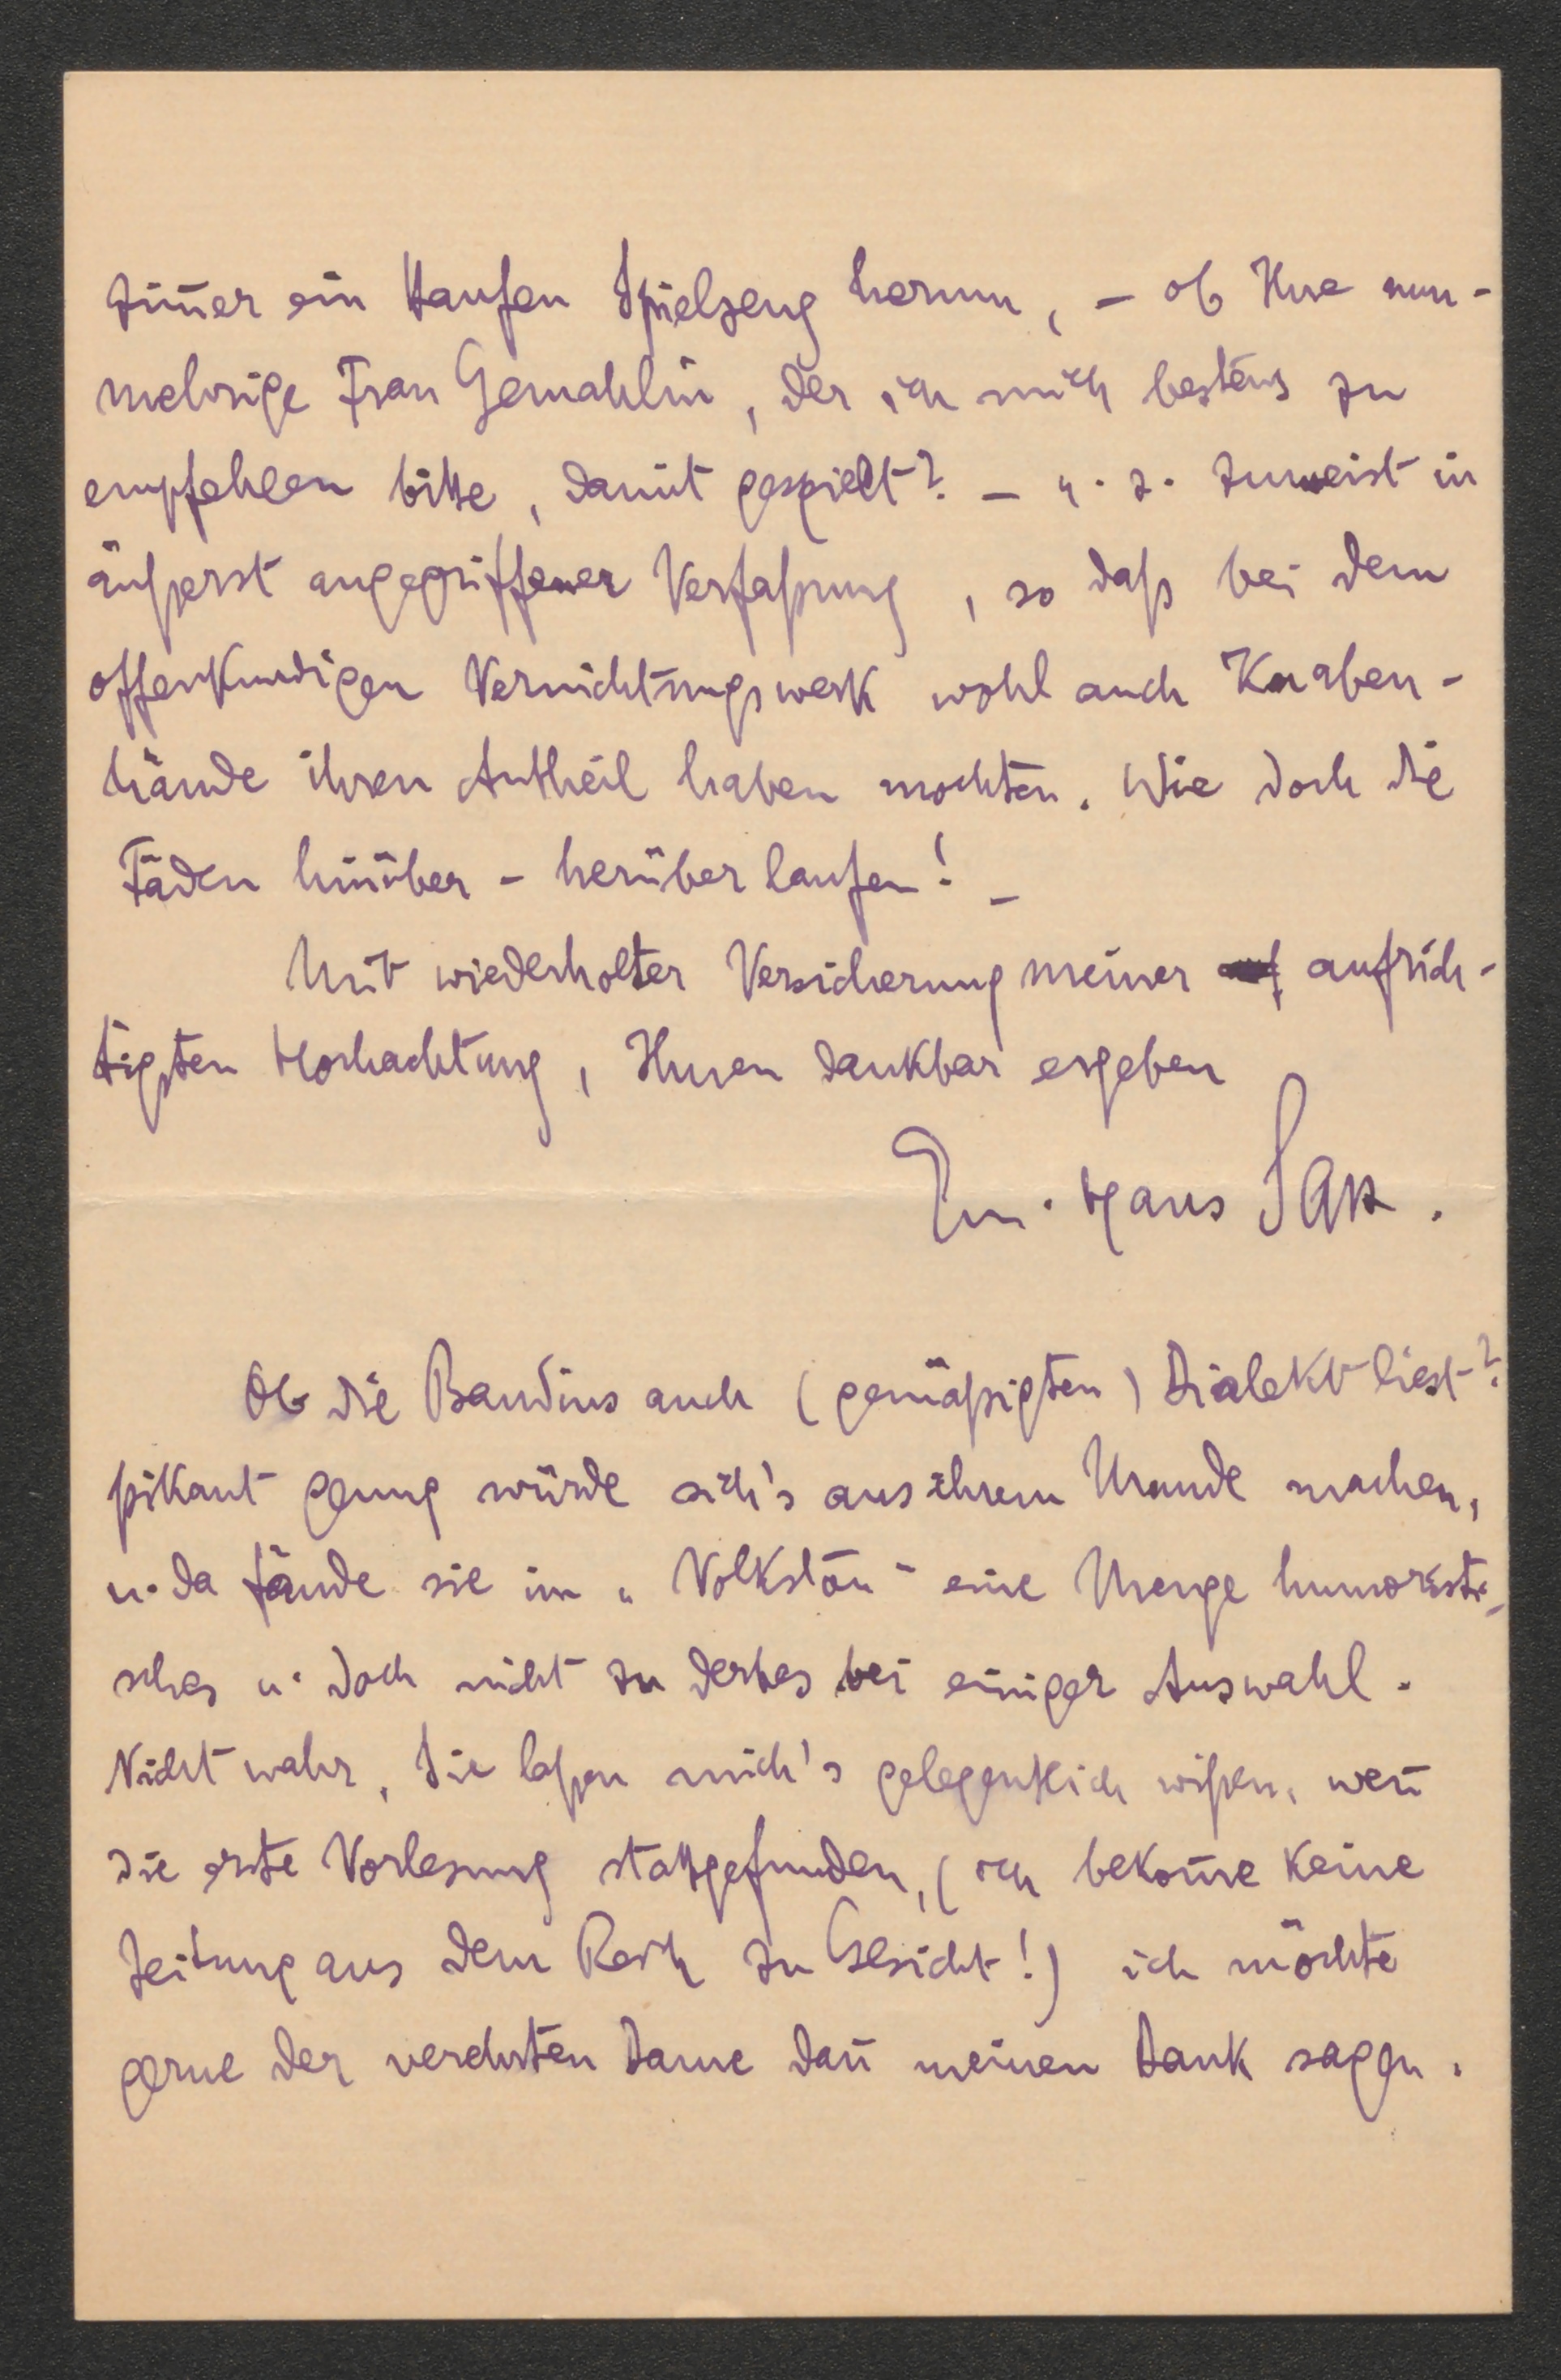 Zim̄er ein Haufen Spielzeug herum, – ob Ihre nun-
mehrige Frau Gemahlin, der ich mich bestens zu
empfehlen bitte, damit gespielt? – u. z. zumeist in
äußerst angegriffener Verfaßung, so daß bei dem
offenkundigen Vernichtungswerk wohl auch Knaben-
hände ihren Antheil haben mochten. Wie doch die
Fäden hinüber – herüber laufen! –
Mit wiederholter Versicherung meiner aufrich-
tigsten Hochachtung, Ihnen dankbar ergeben
Em. Hans Sax.
Ob die Baudius auch (gemäßigten) Dialekt liest?
pikant genug würde sich's aus ihrem Munde machen,
u. da fände sie im „Volkston" eine Menge humoristi-
sches u. doch nicht zu derbes bei einiger Auswahl.
Nicht wahr, Sie laßen mich's gelegentlich wißen, wen̄
die erste Vorlesung stattgefunden, (ich bekom̄e keine
Zeitung aus dem Reich zu Gesicht!) ich möchte
gerne der verehrten Dame dan̄ meinen Dank sagen.